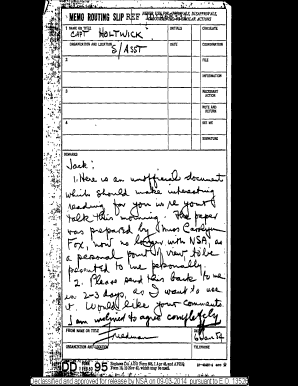 MEMO ROUTING SLIP REF
NEVER USE FOR APPROVALS, DISAPPROVALS,
CONCURRENCES, OR SIMILAR ACTIONS
1 NAME OR TITLE
INITIALS
CIRCULATE
CAPT HOLTWICK
ORGANIZATION AND LOCATION
DATE
COORDINATION
S/ASST
2
FILE
INFORMATION
3
NECESSARY
ACTION
NOTE AND
RETURN
4
SEE ME
SIGNATURE
REMARKS
Jack:
1. Here is an unofficial document
which should make interesting
reading for you vs re your
talk this morning. The paper
was prepared by Miss Carolyn
Fox, now no longer with NSA, as
a personal point of view to be
presented to me personally.
2. Please send this back to me
in 2-3 days, as I want to use
it. Would like your comments.
I am inclined to agree completely.
FROM NAME OR TITLE
DATE
Friedman
ORGANIZATION AND LOCATION
TELEPHONE
DD FORM 95
Replaces DA AGO Form
declassified and approved for release by NSA on 09-03-2014 pursuant to E.O. 1352